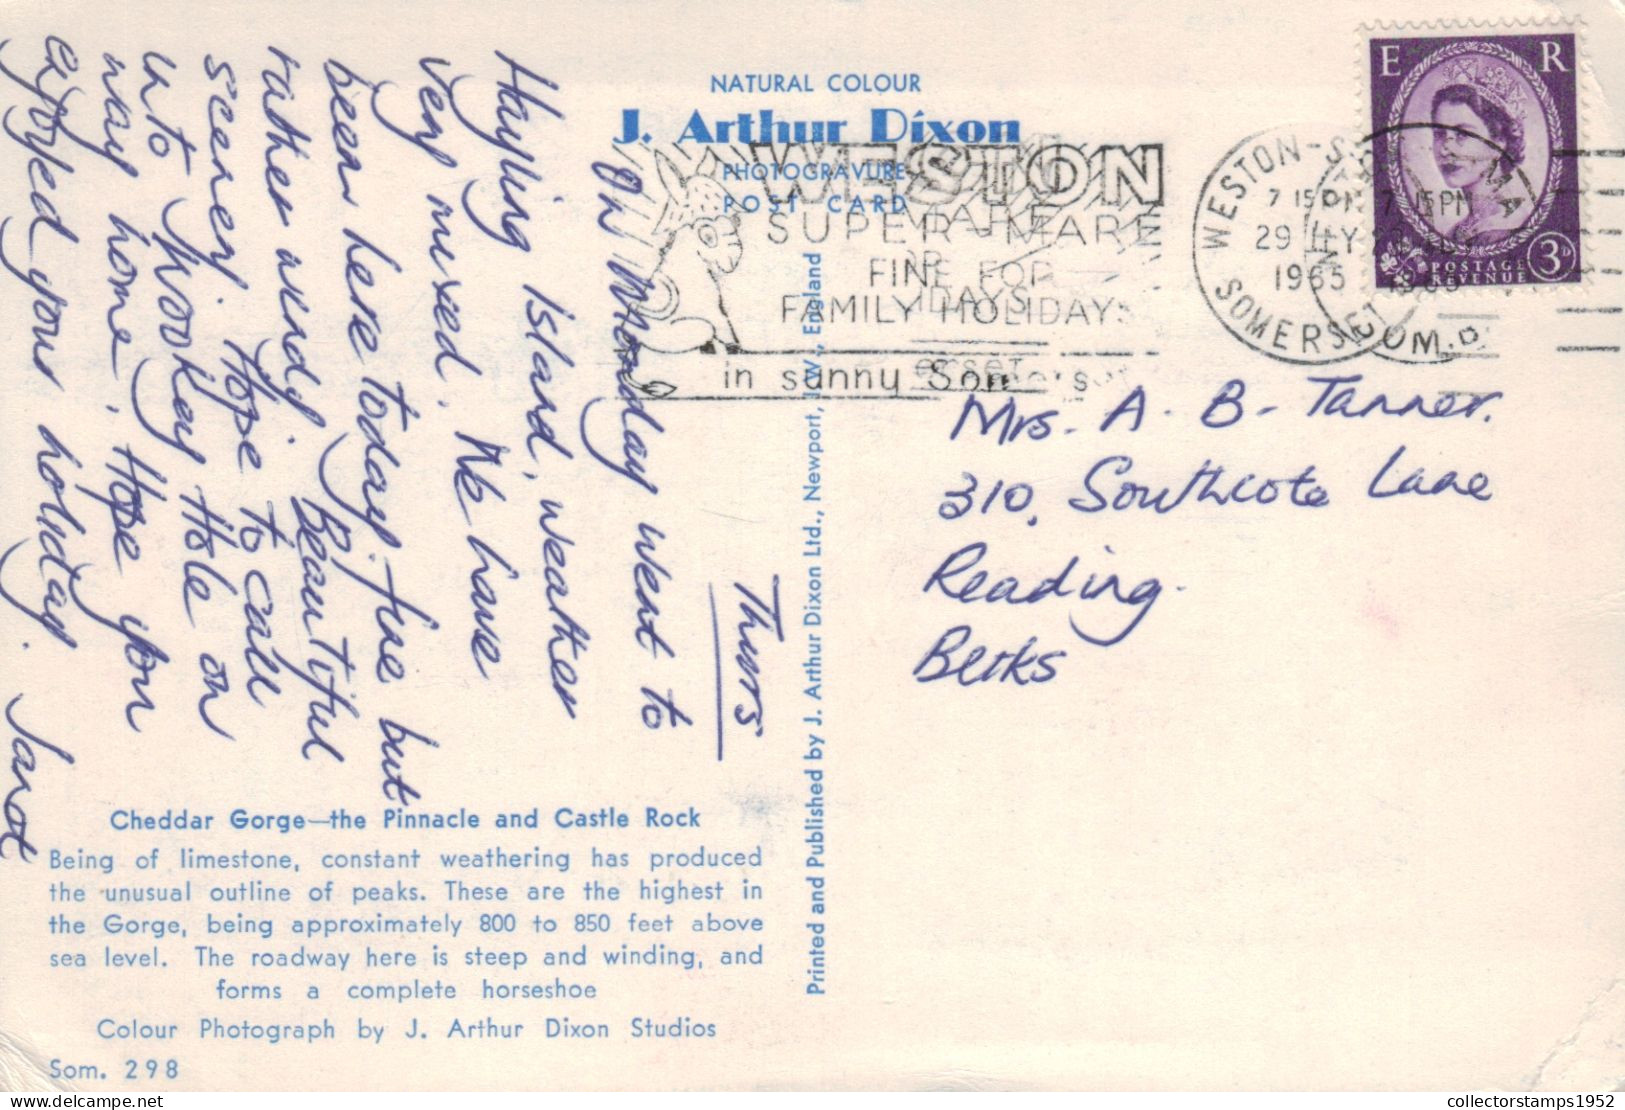 NATURAL COLOUR
J. Arthur Dixon
PHOTOGRAVURE
POST CARD
WESTON
SUPER MARE
FINE FOR
FAMILY HOLIDAYS
in sunny Somerset
WESTON-S
7 15 PM
29 LY
1965
SOMERSET
E R
POSTAGE
REVENUE
3D
Thurs
On Monday went to
Hayling Island, weather
very mixed. We have
been here today fine but
rather windy. Beautiful
scenery. Hope to call
into Wookey Hole on
way home. Hope you
enjoyed your holiday.
Janet
Mrs. A. B. Tanner.
310, Southcote Lane
Reading.
Berks
Printed and Published by J. Arthur Dixon Ltd., Newport, I.W., England
Cheddar Gorge—the Pinnacle and Castle Rock
Being of limestone, constant weathering has produced
the unusual outline of peaks. These are the highest in
the Gorge, being approximately 800 to 850 feet above
sea level. The roadway here is steep and winding, and
forms a complete horseshoe
Colour Photograph by J. Arthur Dixon Studios
Som. 298
collectorstamps1952